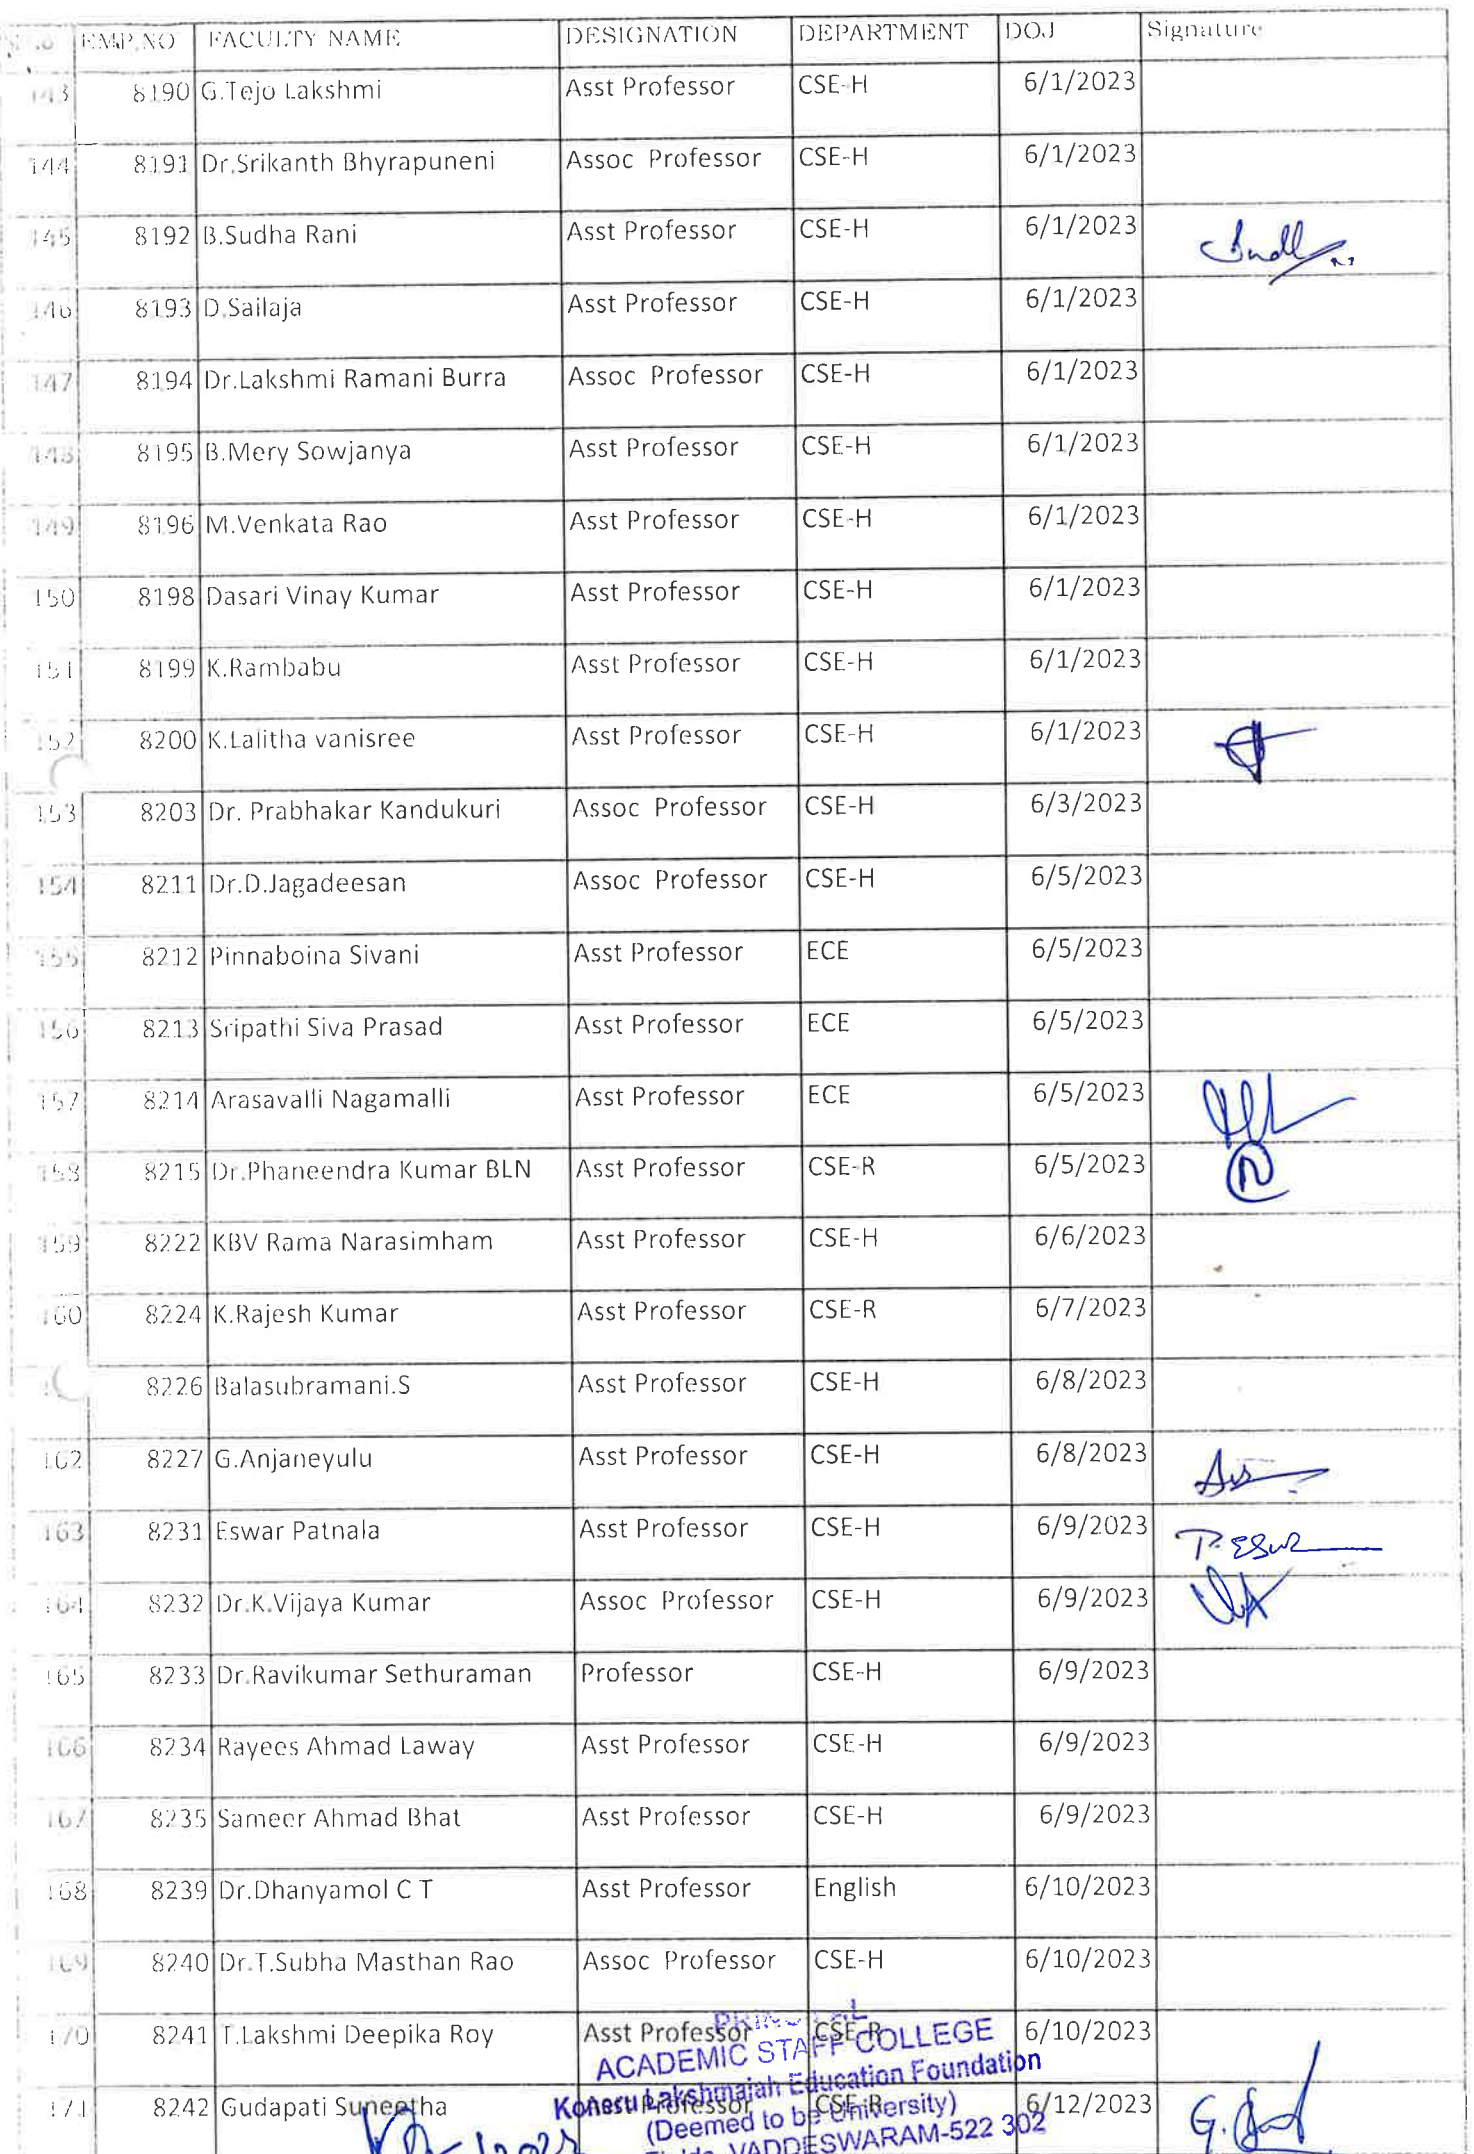 EMP.NO FACULTY NAME DESIGNATION DEPARTMENT DOJ Signature
143 8190 G.Tejo Lakshmi Asst Professor CSE-H 6/1/2023
144 8191 Dr.Srikanth Bhyrapuneni Assoc Professor CSE-H 6/1/2023
145 8192 B.Sudha Rani Asst Professor CSE-H 6/1/2023
146 8193 D.Sailaja Asst Professor CSE-H 6/1/2023
147 8194 Dr.Lakshmi Ramani Burra Assoc Professor CSE-H 6/1/2023
148 8195 B.Mery Sowjanya Asst Professor CSE-H 6/1/2023
149 8196 M.Venkata Rao Asst Professor CSE-H 6/1/2023
150 8198 Dasari Vinay Kumar Asst Professor CSE-H 6/1/2023
151 8199 K.Rambabu Asst Professor CSE-H 6/1/2023
152 8200 K.Lalitha vanisree Asst Professor CSE-H 6/1/2023
153 8203 Dr. Prabhakar Kandukuri Assoc Professor CSE-H 6/3/2023
154 8211 Dr.D.Jagadeesan Assoc Professor CSE-H 6/5/2023
155 8212 Pinnaboina Sivani Asst Professor ECE 6/5/2023
156 8213 Sripathi Siva Prasad Asst Professor ECE 6/5/2023
157 8214 Arasavalli Nagamalli Asst Professor ECE 6/5/2023
158 8215 Dr.Phaneendra Kumar BLN Asst Professor CSE-R 6/5/2023
159 8222 KBV Rama Narasimham Asst Professor CSE-H 6/6/2023
160 8224 K.Rajesh Kumar Asst Professor CSE-R 6/7/2023
8226 Balasubramani.S Asst Professor CSE-H 6/8/2023
162 8227 G.Anjaneyulu Asst Professor CSE-H 6/8/2023
163 8231 Eswar Patnala Asst Professor CSE-H 6/9/2023
164 8232 Dr.K.Vijaya Kumar Assoc Professor CSE-H 6/9/2023
165 8233 Dr.Ravikumar Sethuraman Professor CSE-H 6/9/2023
166 8234 Rayees Ahmad Laway Asst Professor CSE-H 6/9/2023
167 8235 Sameer Ahmad Bhat Asst Professor CSE-H 6/9/2023
168 8239 Dr.Dhanyamol C T Asst Professor English 6/10/2023
169 8240 Dr.T.Subha Masthan Rao Assoc Professor CSE-H 6/10/2023
170 8241 T.Lakshmi Deepika Roy Asst Professor CSE-R 6/10/2023
ACADEMIC STAFF COLLEGE
Koneru Lakshmaiah Education Foundation
171 8242 Gudapati Suneetha Asst Professor CSE-R 6/12/2023
(Deemed to be University)
VADDESWARAM-522 302